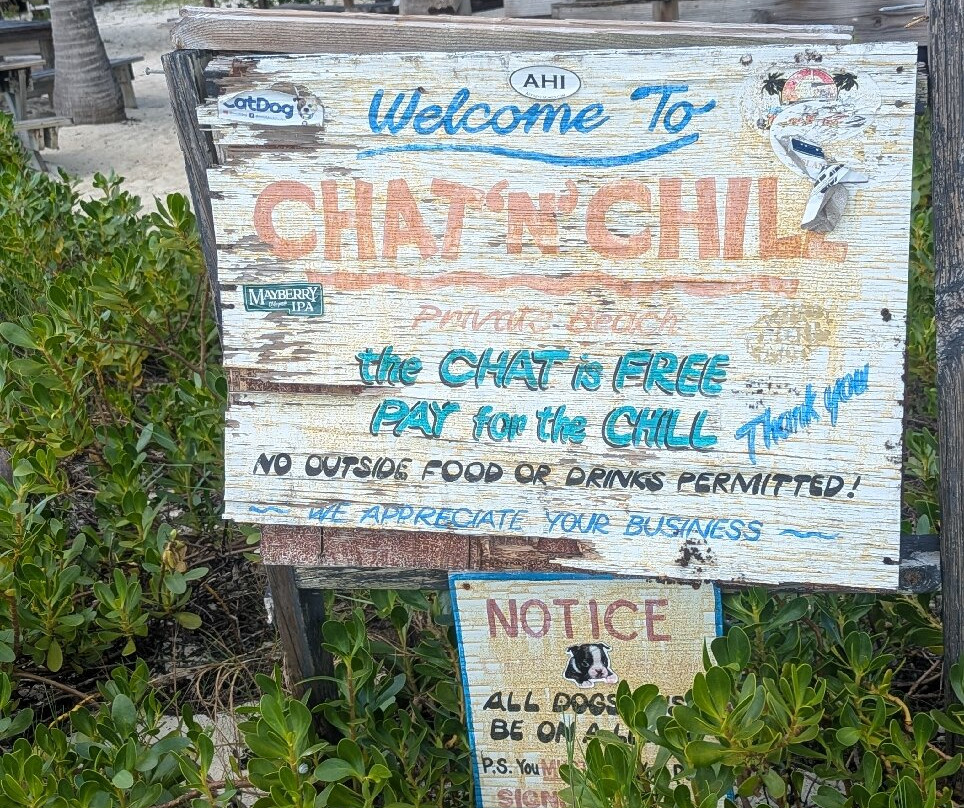 AHI
CatDog
Welcome To
CHAT 'N' CHILL
MAYBERRY
IPA
Private Beach
the CHAT is FREE
PAY for the CHILL
Thank you
NO OUTSIDE FOOD OR DRINKS PERMITTED!
~ WE APPRECIATE YOUR BUSINESS ~
NOTICE
ALL DOGS
BE ON A
P.S. You
SIGN